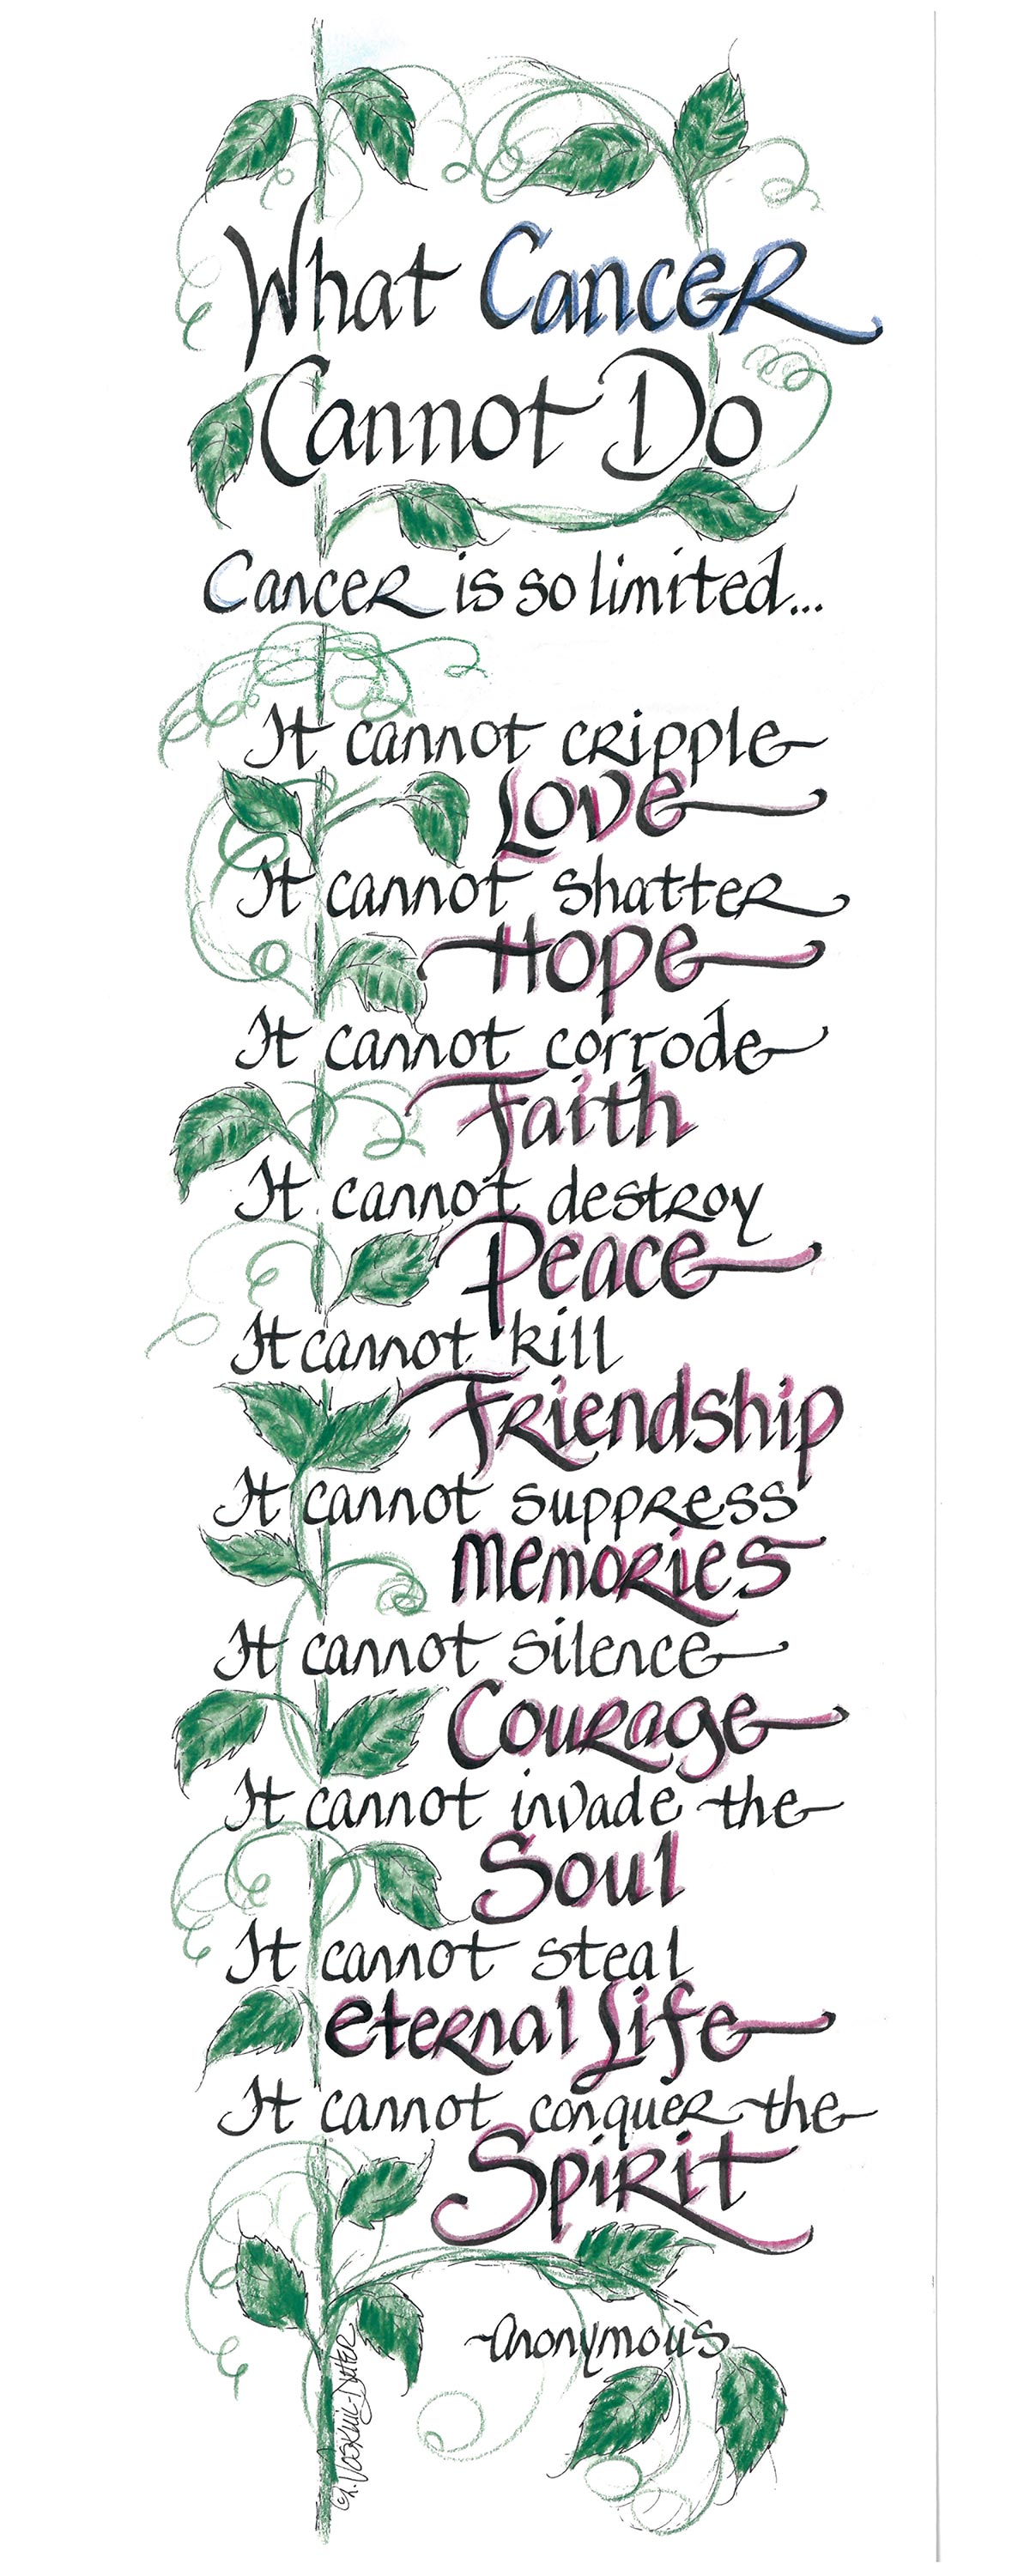 What Cancer
Cannot Do
Cancer is so limited...
It cannot cripple
Love
It cannot shatter
Hope
It cannot corrode
Faith
It cannot destroy
Peace
It cannot kill
Friendship
It cannot suppress
Memories
It cannot silence
Courage
It cannot invade the
Soul
It cannot steal
eternal Life
It cannot conquer the
Spirit
-Anonymous